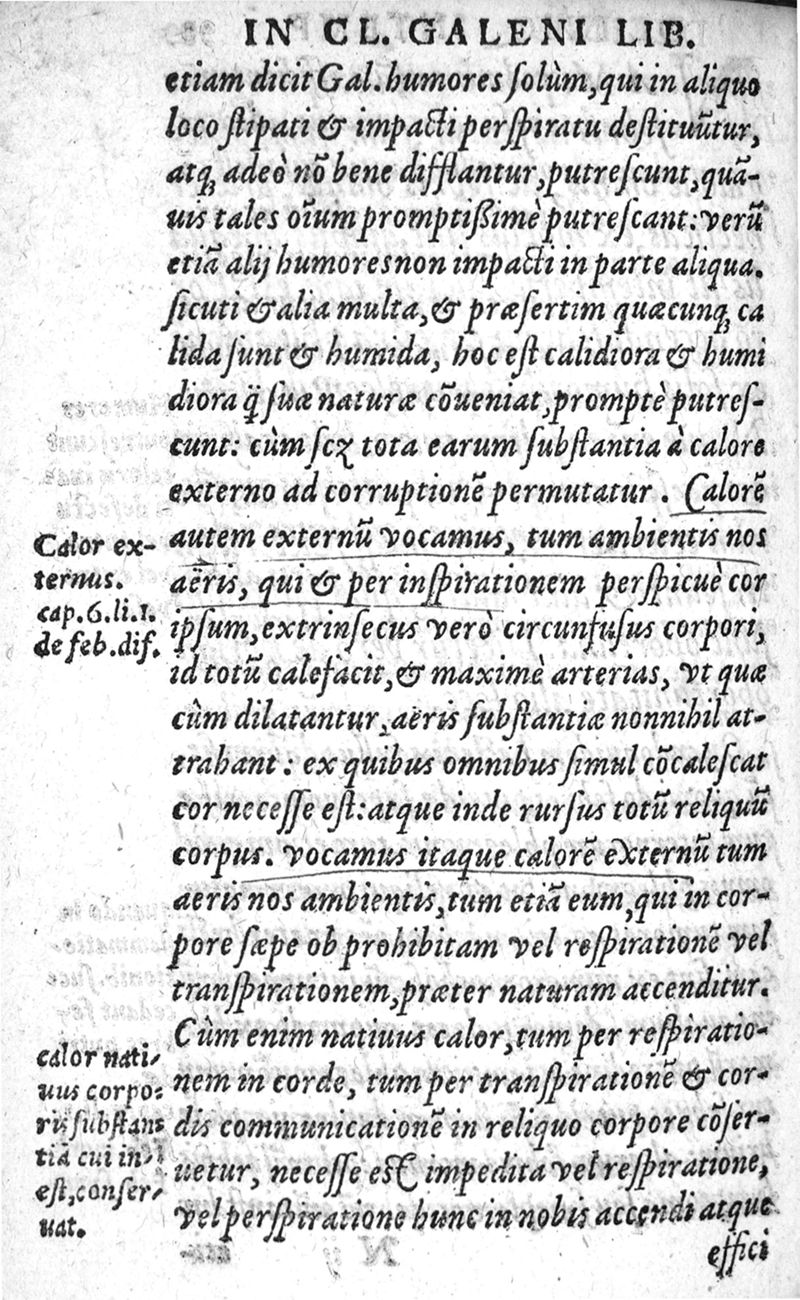 IN CL. GALENI LIB.
etiam dicit Gal. humores ſolùm, qui in aliquo
loco ſtipati & impacti perſpiratu deſtituũtur,
atq; adeò nõ bene difflantur, putreſcunt, quã-
uis tales oĩum promptißimè putreſcant: verũ
etiã alij humores non impacti in parte aliqua.
ſicuti & alia multa, & præſertim quæcunq; ca
lida ſunt & humida, hoc eſt calidiora & humi
diora q̃ſuæ naturæ cõueniat, promptè putreſ-
cunt: cùm ſcz tota earum ſubſtantia à calore
externo ad corruptionẽ permutatur. Calorẽ
Calor ex-
ternus.
cap.6.li.1.
de feb.dif.
autem externũ vocamus, tum ambientis nos
aëris, qui & per inſpirationem perſpicuè cor
ipſum, extrinſecus verò circunfuſus corpori,
id totũ calefacit, & maximè arterias, vt quæ
cùm dilatantur, aëris ſubſtantiæ nonnihil at-
trahant: ex quibus omnibus ſimul cõcaleſcat
cor neceſſe eſt: atque inde rurſus totũ reliquũ
corpus. vocamus itaque calorẽ externũ tum
aeris nos ambientis, tum etiã eum, qui in cor-
pore ſæpe ob prohibitam vel reſpirationẽ vel
tranſpirationem, præter naturam accenditur.
Cùm enim natiuus calor, tum per reſpiratio-
calor nati-
uus corpo-
ris ſubſtan-
tiã cui in-
eſt, conſer-
uat.
nem in corde, tum per tranſpirationẽ & cor-
dis communicationẽ in reliquo corpore cõſer-
uetur, neceſſe eſt impedita vel reſpiratione,
vel perſpiratione hunc in nobis accendi atque
effici